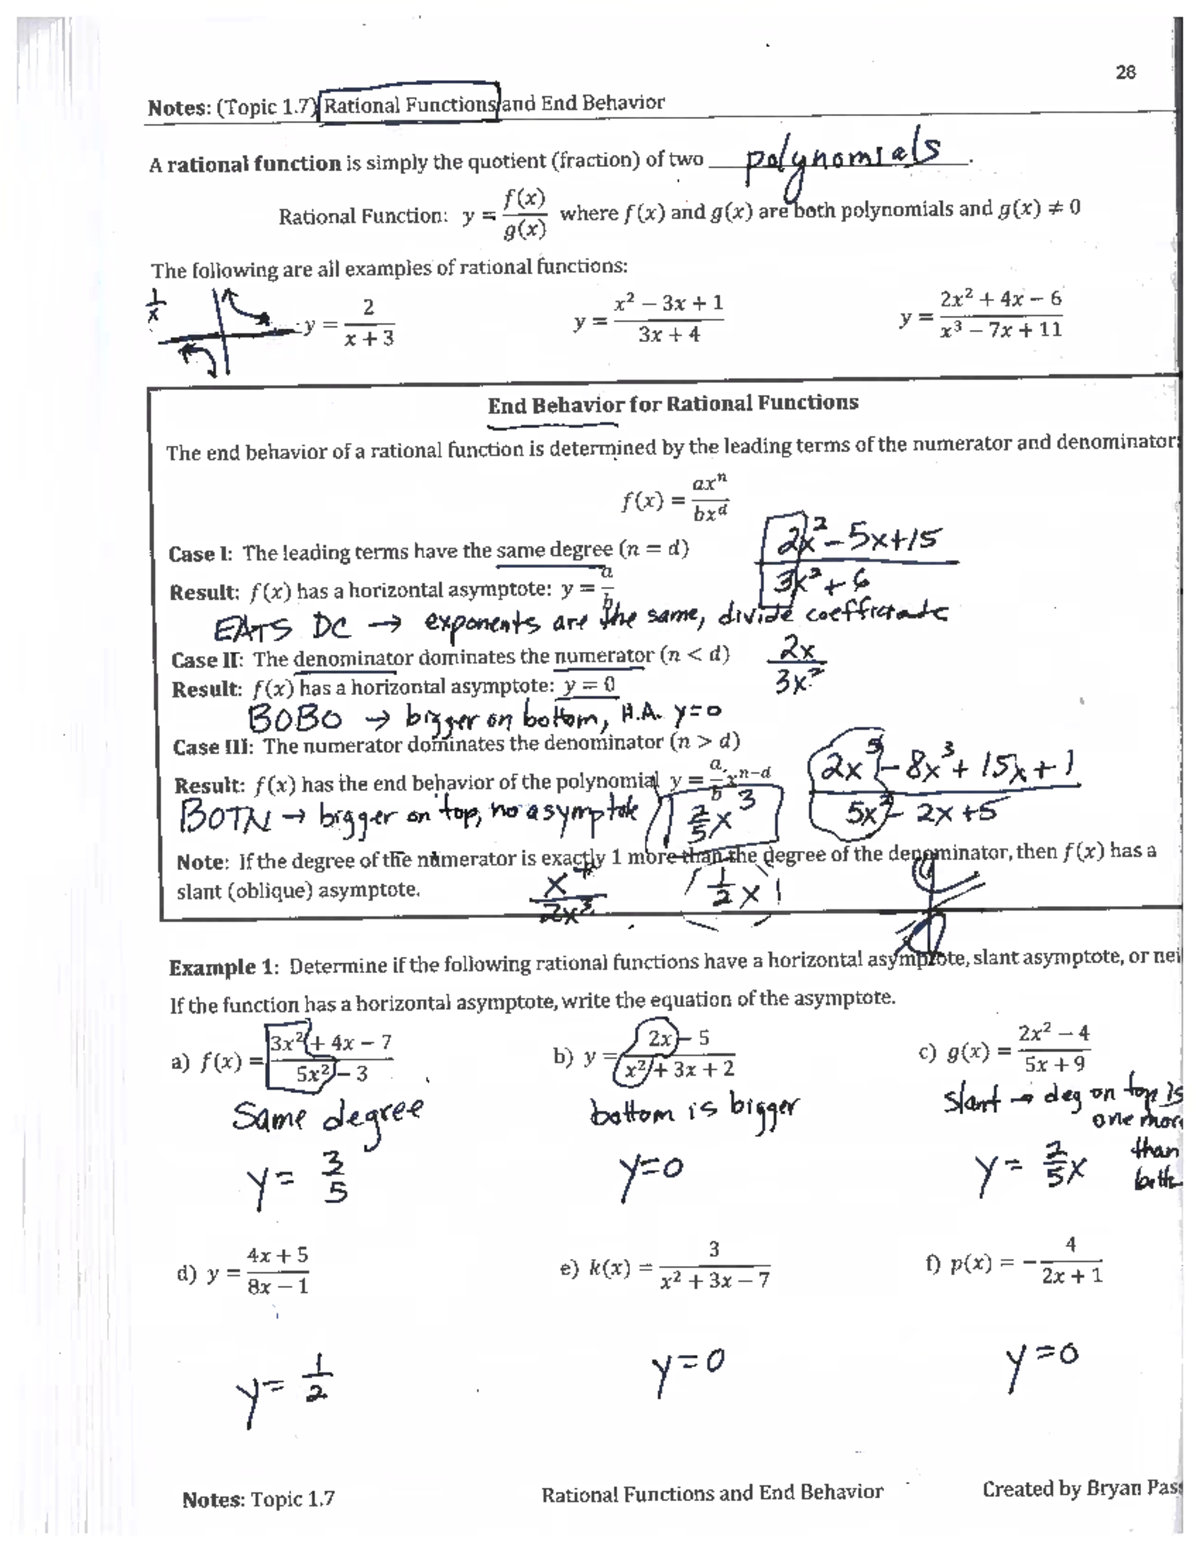 28
Notes: (Topic 1.7) Rational Functions and End Behavior
A rational function is simply the quotient (fraction) of two polynomials.
Rational Function: y = f(x)/g(x) where f(x) and g(x) are both polynomials and g(x) ≠ 0
The following are all examples of rational functions:
1/x y = 2/(x + 3) y = (x² − 3x + 1)/(3x + 4) y = (2x² + 4x − 6)/(x³ − 7x + 11)
End Behavior for Rational Functions
The end behavior of a rational function is determined by the leading terms of the numerator and denominator
f(x) = axⁿ/bxᵈ
Case I: The leading terms have the same degree (n = d) (2x² − 5x + 15)/(3x² + 6)
Result: f(x) has a horizontal asymptote: y = a/b
EATS DC → exponents are the same, divide coefficients
Case II: The denominator dominates the numerator (n < d) 2x/3x²
Result: f(x) has a horizontal asymptote: y = 0
BOBO → bigger on bottom, H.A. y=0
Case III: The numerator dominates the denominator (n > d) (2x⁵ − 8x³ + 15x + 1)/(5x² − 2x + 5)
Result: f(x) has the end behavior of the polynomial y = a/b xⁿ⁻ᵈ
BOTN → bigger on top, no asymptote 2/5 x³
Note: If the degree of the numerator is exactly 1 more than the degree of the denominator, then f(x) has a
slant (oblique) asymptote. x⁴/2x³ 1/2 x
Example 1: Determine if the following rational functions have a horizontal asymptote, slant asymptote, or nei
If the function has a horizontal asymptote, write the equation of the asymptote.
a) f(x) = (3x² + 4x − 7)/(5x² − 3) b) y = (2x − 5)/(x² + 3x + 2) c) g(x) = (2x² − 4)/(5x + 9)
Same degree bottom is bigger slant → deg on top is
one more
than
y = 3/5 y=0 y = 2/5 x
d) y = (4x + 5)/(8x − 1) e) k(x) = 3/(x² + 3x − 7) f) p(x) = − 4/(2x + 1)
y = 1/2 y=0 y=0
Notes: Topic 1.7 Rational Functions and End Behavior Created by Bryan Pas